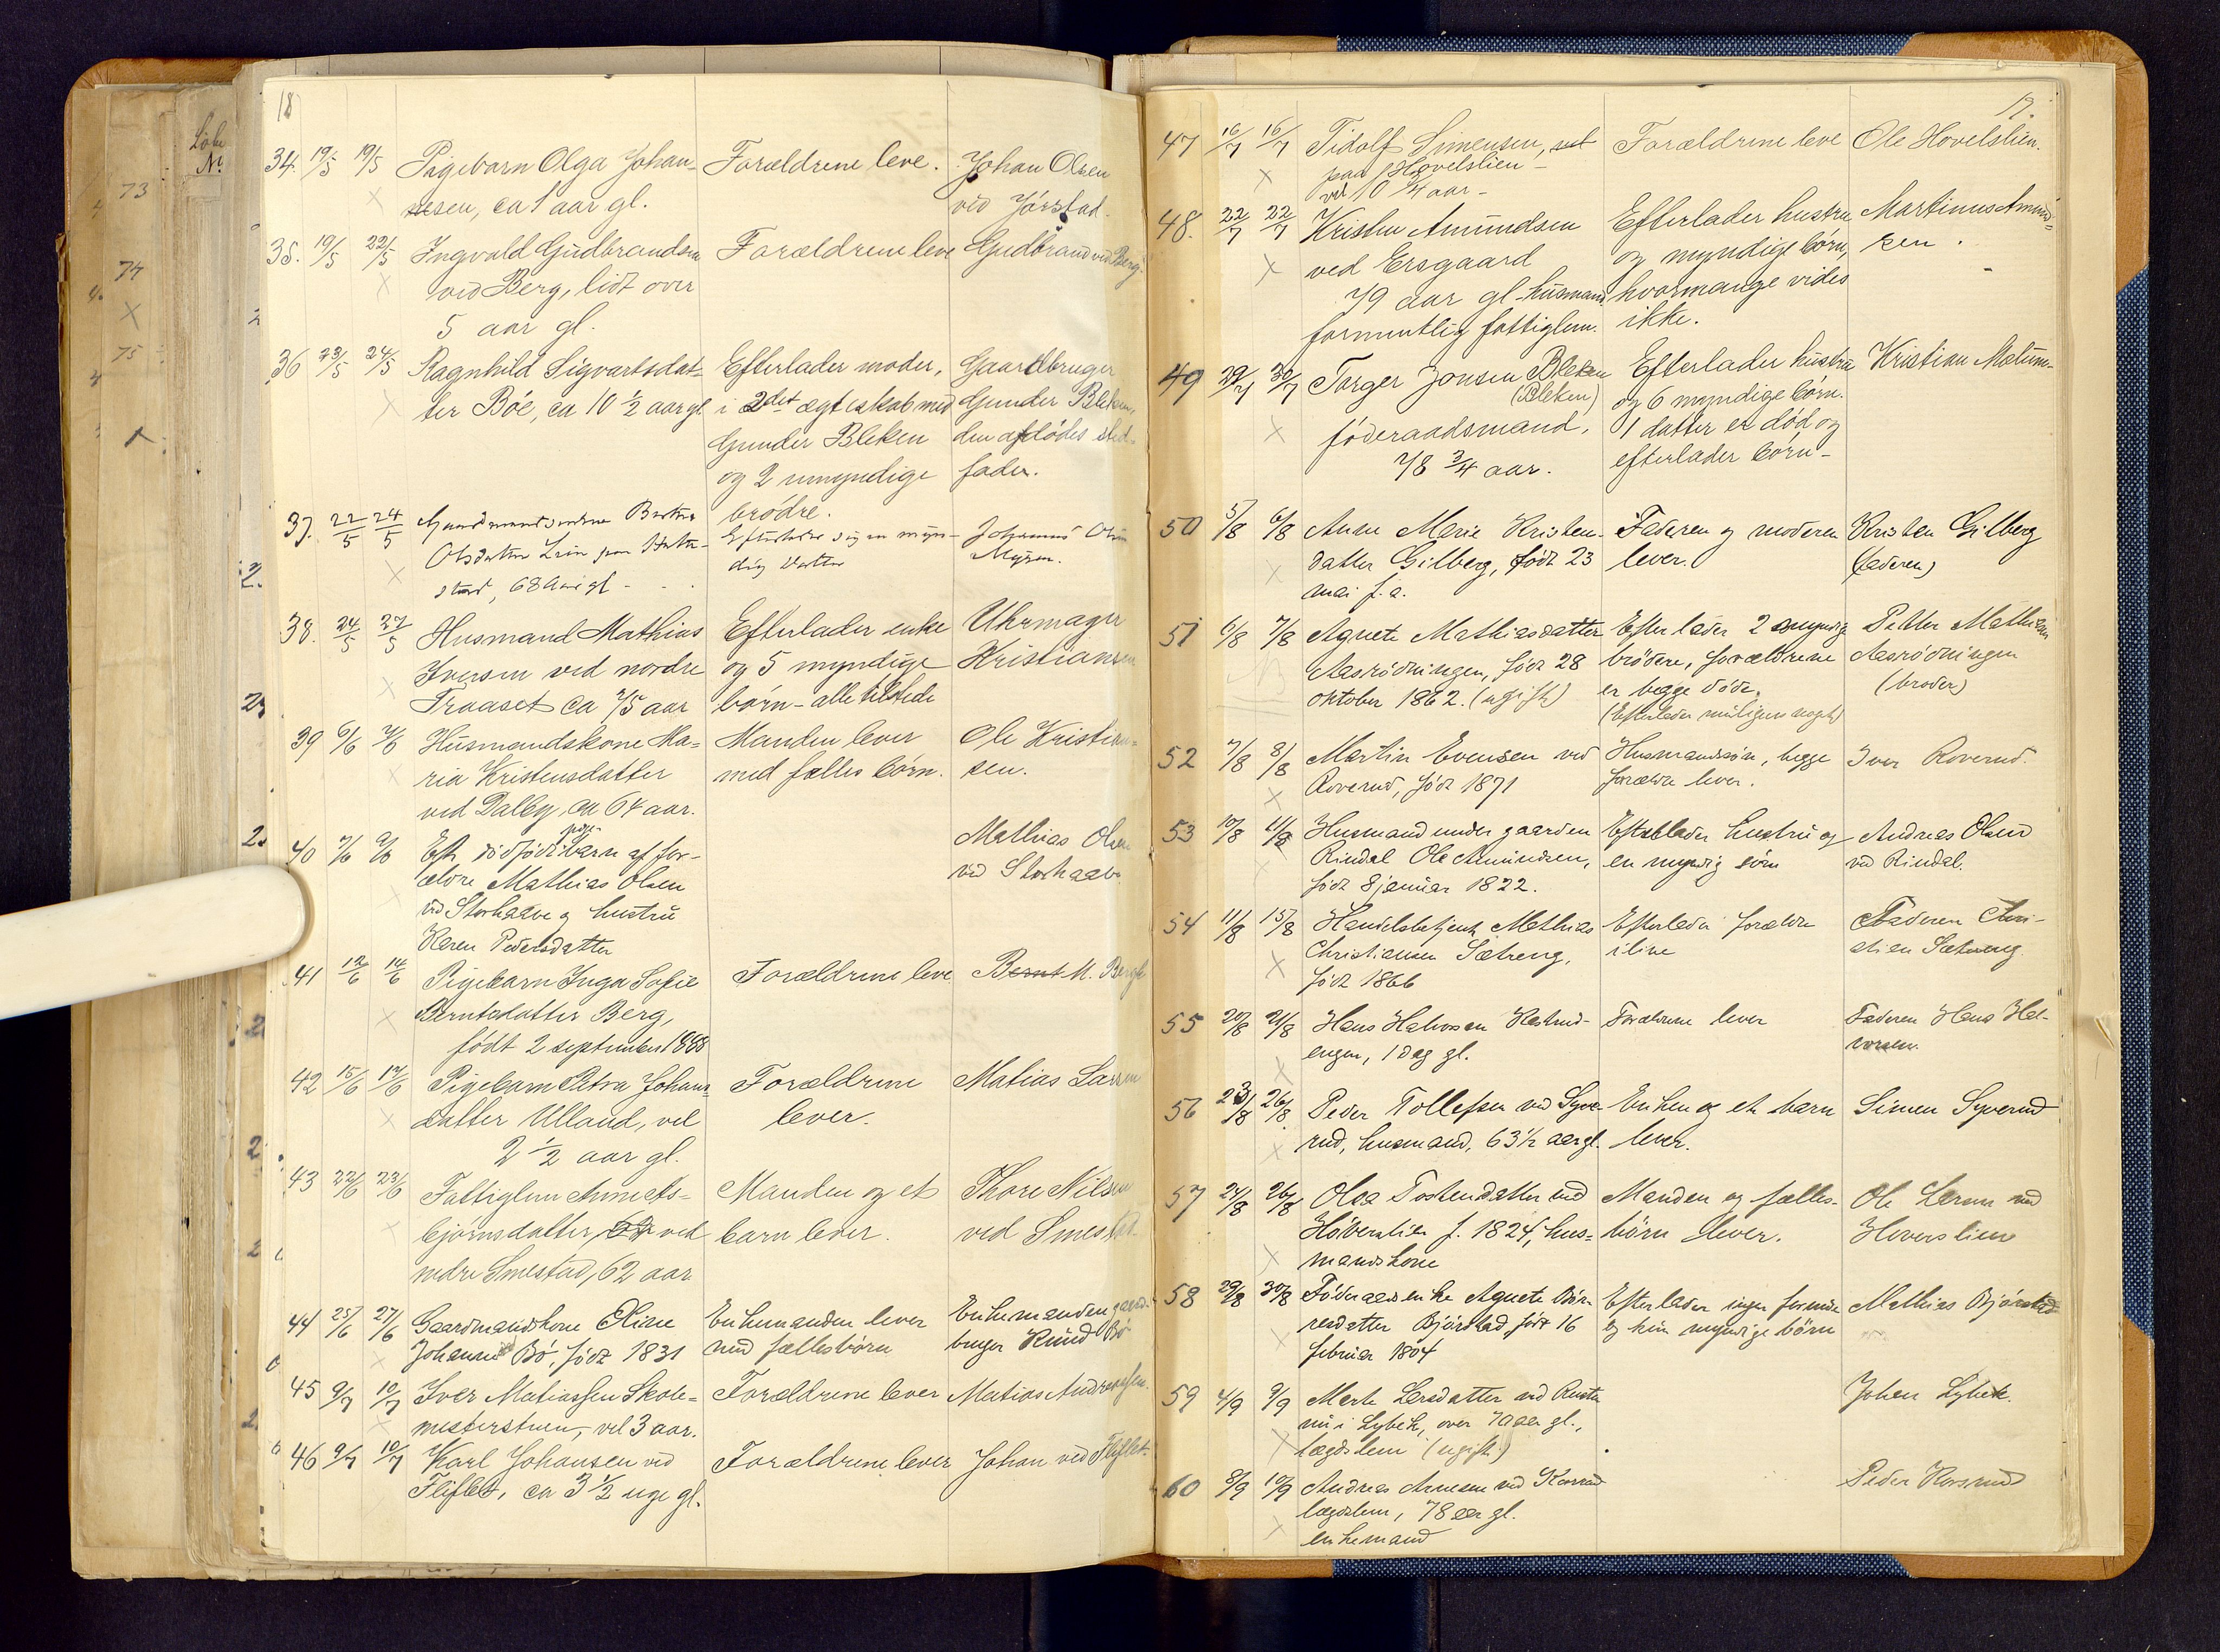 18
34. 19/5 19/5 Pigebarn Olga Johan- Forældrene leve. Johan Olsen
nesen, ca 1 aar gl. ved Jörstad.
35. 19/5 22/5 Ingvald Gudbrandsen Forældrene leve Gudbrand ved Berg.
ved Berg, lidt over
5 aar gl.
36 23/5 24/5 Ragnhild Sigvartsdat- Efterlader moder, Gaardbruger
ter Böe, ca 10 1/2 aar gl. i 2det ægteskab med Gunder Bleken,
Gunder Bleken den afdödes sted-
og 2 umyndige fader.
brödre.
37. 22/5 24/5 Efterlader sig en myn- Johannes
Olsdatter dig datter Myren.
68 aar gl.
38. 24/5 27/5 Husmand Mathias Efterlader enke Uhrmager
Iversen ved nordre og 5 myndige Kristiansen
Fraaset ca 75 aar börn - alle tilstede
39 6/6 7/6 Husmandskone Ma- Manden lever Ole Kristian-
ria Kristensdatter med fælles börn. sen.
ved Dalby, ca 64 aar.
40 7/6 9/6 Et dödfödt pige- barn af for- Mathias Olsen
ældre Mathias Olsen ved Storhaave
ved Storhaave og hustru
Karen Pedersdatter
41 12/6 14/6 Pigebarn Inga Sofie Forældrene leve Bernt M. Berg
Berntsdatter Berg,
födt 2 september 1888
42 15/6 17/6 Pigebarn Petra Johans- Forældrene Matias Larsen
datter Ulland, vel lever.
2 1/2 aar gl.
43 22/6 23/6 Fattiglem Anne As- Manden og et Thore Nilsen
bjørnsdatter ved barn lever. ved Smestad.
nedre Smestad, 62 aar
44 25/6 27/6 Gaardmandskone Oline Enkemanden lever Enkemanden gaard-
Johannes Bö, födt 1831 med fællesbörn bruger Knud Bö
45 9/7 10/7 Iver Matiassen Skole- Forældrene lever Matias Andreassen.
mesterstuen, vel 3 aar.
46 9/7 10/7 Karl Johansen ved Forældrene lever Johan ved Fliflet.
Fliflet, ca 3 1/2 uge gl.
19.
47 16/7 16/7 Tidolf Simensen, Forældrene leve Ole Hovelslien.
paa Hovelslien -
vel 10 1/4 aar -
48. 22/7 22/7 Kristen Amundsen Efterlader hustru Martinus Amund-
ved Ersgaard og myndige börn, sen.
79 aar gl - husmand, hvormange vides
formentlig fattiglem. ikke.
49 29/7 30/7 Torger Jonsen Bleken Efterlader hustru Kristian Matum-
(Bleken) og 6 myndige börn.
föderaadsmand, 1 datter er död og
78 3/4 aar. efterlader börn -
50 5/8 6/8 Anne Marie Kristen- Faderen og moderen Kristen Gilberg
datter Gilberg, födt 23 lever. (faderen)
mai f. a.
51 6/8 7/8 Agnete Mathiasdatter Efterlader 2 myndige Petter Mathisen
Aasrödningen, födt 28 brödre, forældrene Aasrödningen
oktober 1862. (ugift) er begge döde. (broder)
(Efterlader muligens noget)
52 7/8 8/8 Martin Evensen ved Husmandssön, begge Iver Roverud.
Roverud, födt 1871 forældre lever.
53 10/8 11/8 Husmand under gaarden Efterlader hustru og Andreas Olsen
Rindal Ole Amundsen, en myndig sön ved Rindal.
födt 8 januar 1822.
54 11/8 15/8 Handelsbetjent Mathias Efterlader forældre Faderen Chri-
Christiansen Sætreng, ilive stian Sætreng
födt 1866
55 20/8 21/8 Hans Halvorsen Forældrene lever Faderen Hans Hal-
engen, 1 dag gl. vorsen.
56 23/8 26/8 Peder Tollefsen ved Syve- Enken og et barn Simen Syverud
rud, husmand, 63 1/2 aar gl. lever.
57 24/8 26/8 Olea Tostendatter ved Manden og fælles- Ole Larsen ved
Höverslien f. 1824, hus- börn lever. Hoverslien
mandskone
58 29/8 30/8 Föderaadsenke Agnete Bör- Efterlader ingen formue Mathias Bjørstad
resdatter Bjørstad, födt 16 og kun myndige börn
februar 1804
59 4/9 9/9 Marte Larsdatter ved Johan Lybek.
i Lybek, over 70 aar gl.,
lægdslem (ugift)
60 8/9 10/9 Andreas Arnesen ved Korsrud Peder Korsrud
lægdslem, 78 aar gl.
enkemand
Löbe
No
73
74
75